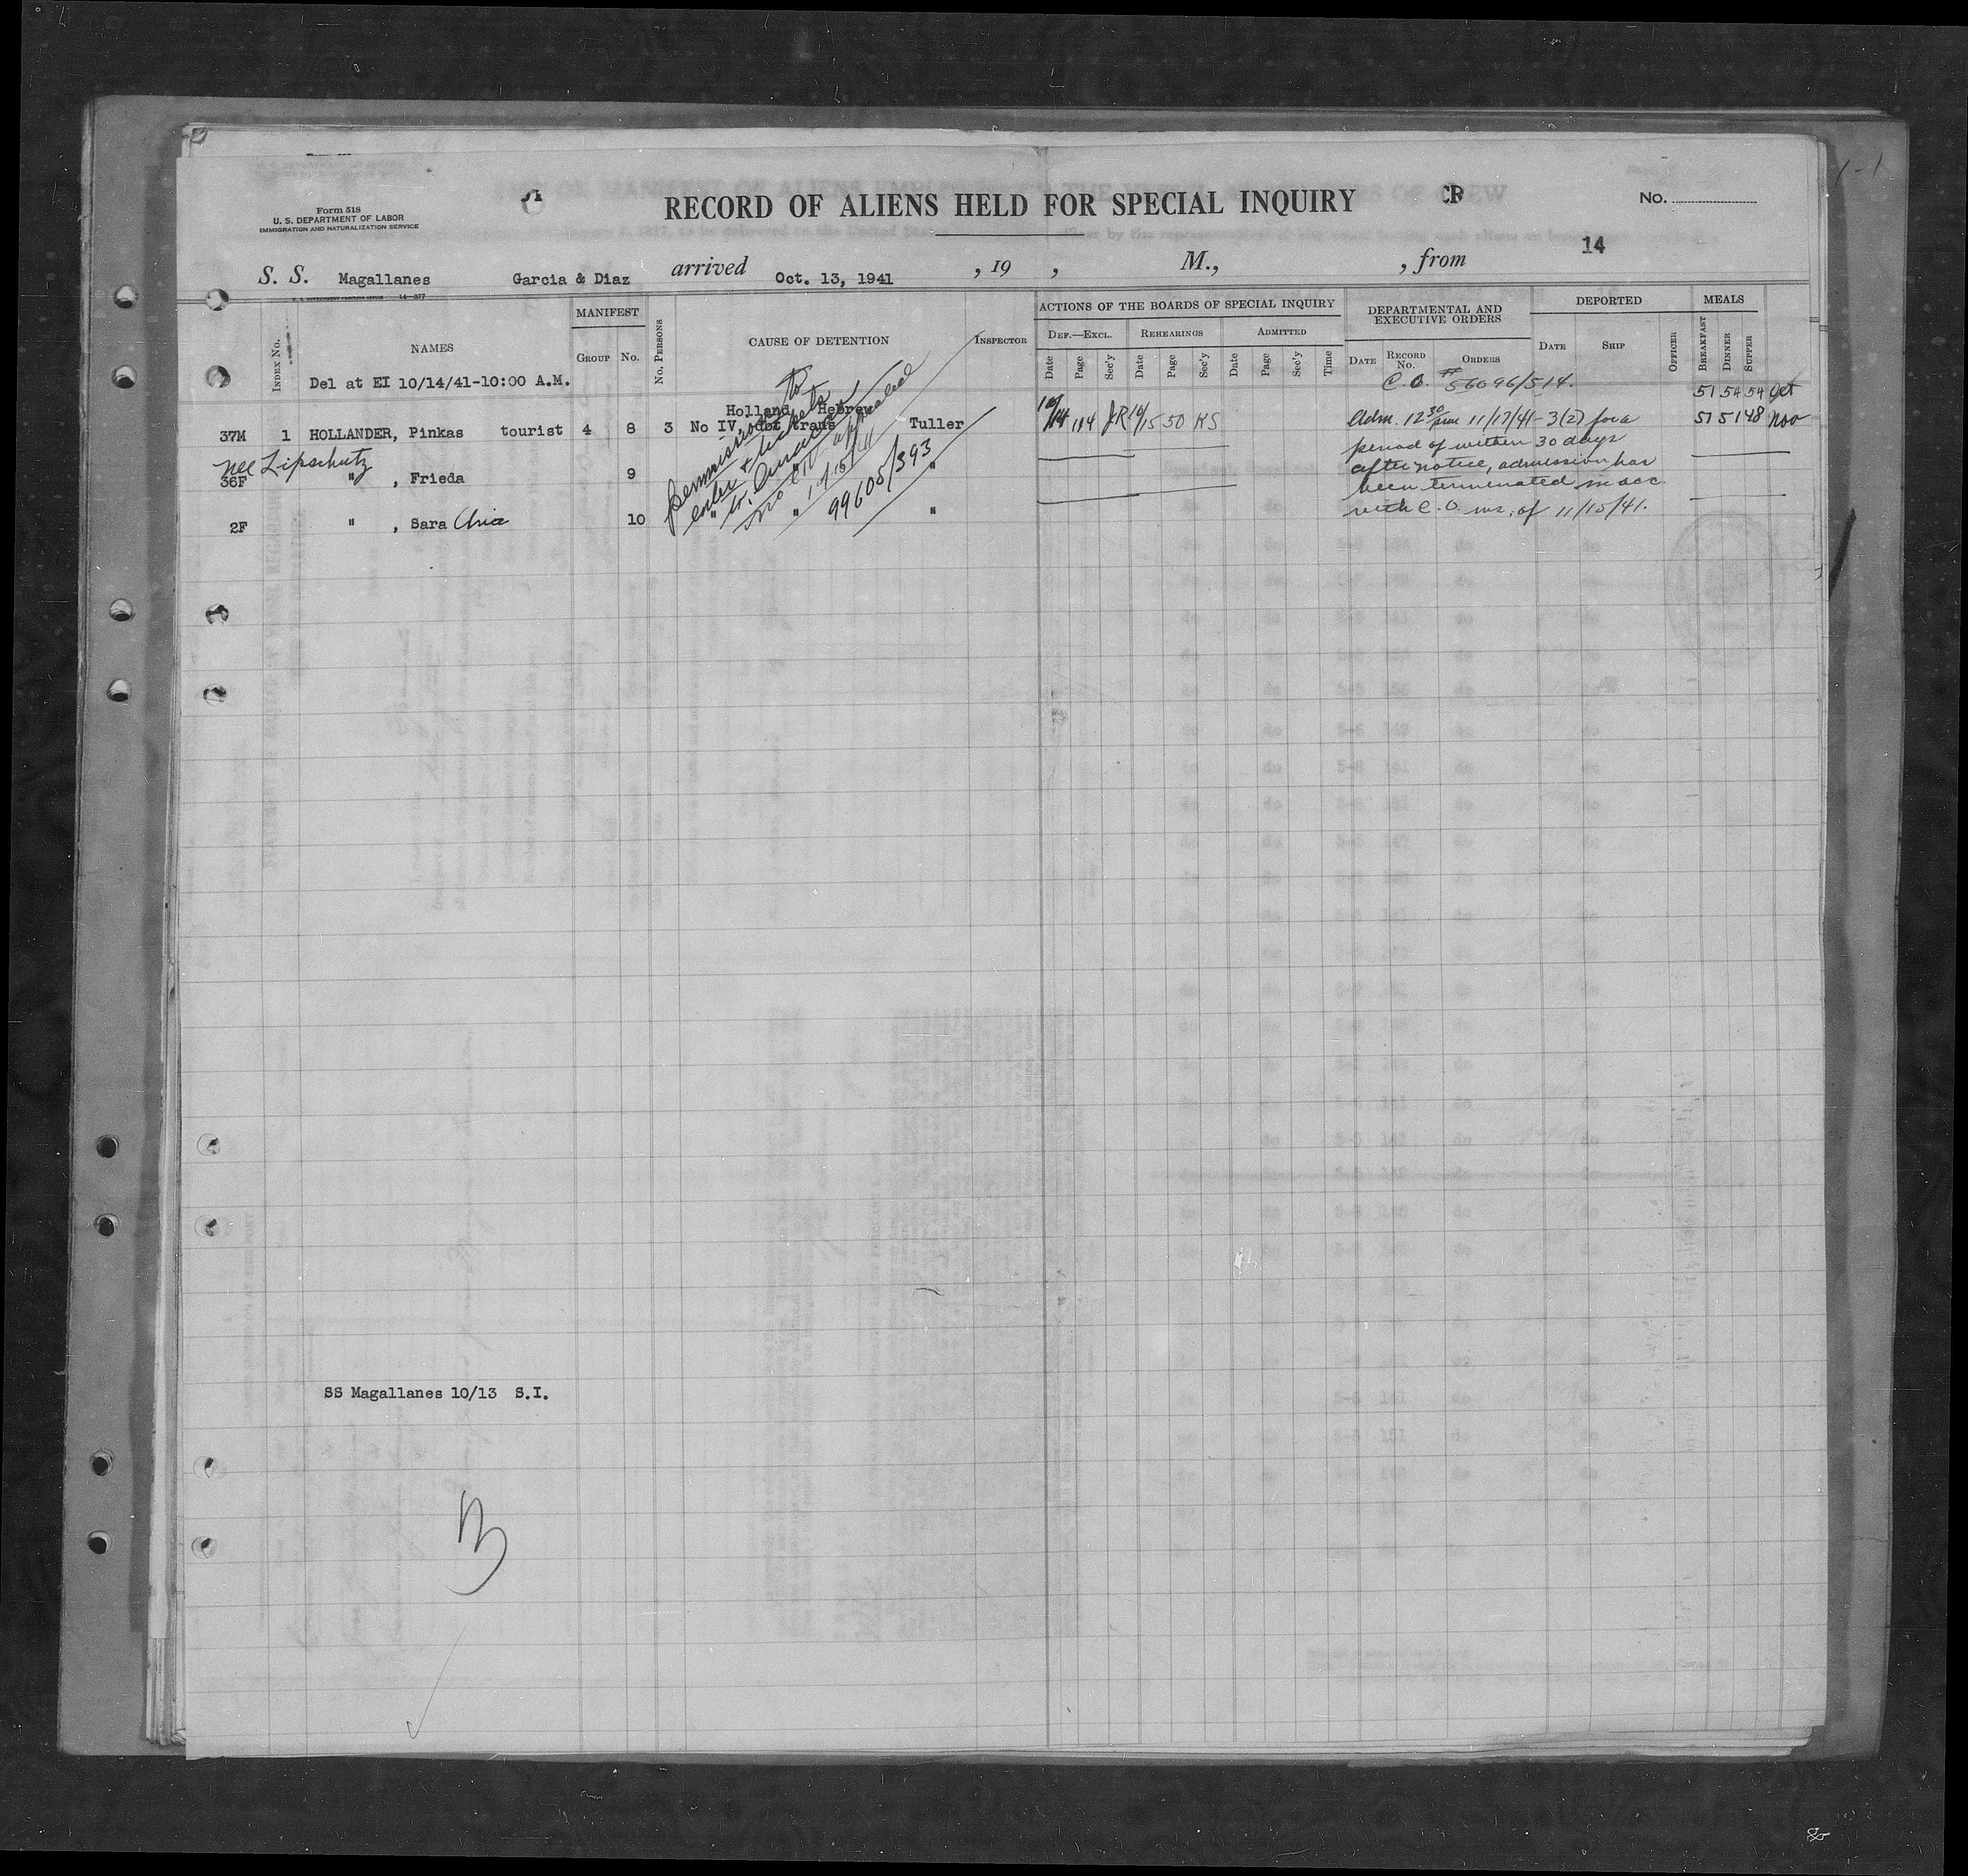 Form 518
U. S. DEPARTMENT OF LABOR
IMMIGRATION AND NATURALIZATION SERVICE
RECORD OF ALIENS HELD FOR SPECIAL INQUIRY
No.
14
S. S. Magallanes Garcia & Diaz arrived Oct. 13, 1941 , 19 , M., , from
INDEX No.
NAMES
MANIFEST
GROUP No.
No. PERSONS
CAUSE OF DETENTION
INSPECTOR
ACTIONS OF THE BOARDS OF SPECIAL INQUIRY
DEF.—EXCL. REHEARINGS ADMITTED
Date Page Sec'y Date Page Sec'y Date Page Sec'y Time
DEPARTMENTAL AND EXECUTIVE ORDERS
DATE RECORD No. ORDERS
DEPORTED
DATE SHIP OFFICER
MEALS
BREAKFAST DINNER SUPPER
Del at EI 10/14/41-10:00 A.M.
C.O. # 56096/514.
51 54 54 Oct
Holland Hebrew
37M 1 HOLLANDER, Pinkas tourist 4 8 3 No IV, dbt trans Tuller 10/14 114 JR 10/15 50 KS Adm. 12 30 pm 11/17/41 - 3(2) for a 51 51 48 Nov
period of within 30 days
nee Lipschutz
36F " , Frieda 9 "
after notice, admission has
been terminated in acc.
2F " , Sara 10 " " "
with C.O. ins. of 11/15/41.
permission to
enter + tickets
to Curacao
no
11/15/41
99605/393
SS Magallanes 10/13 S.I.